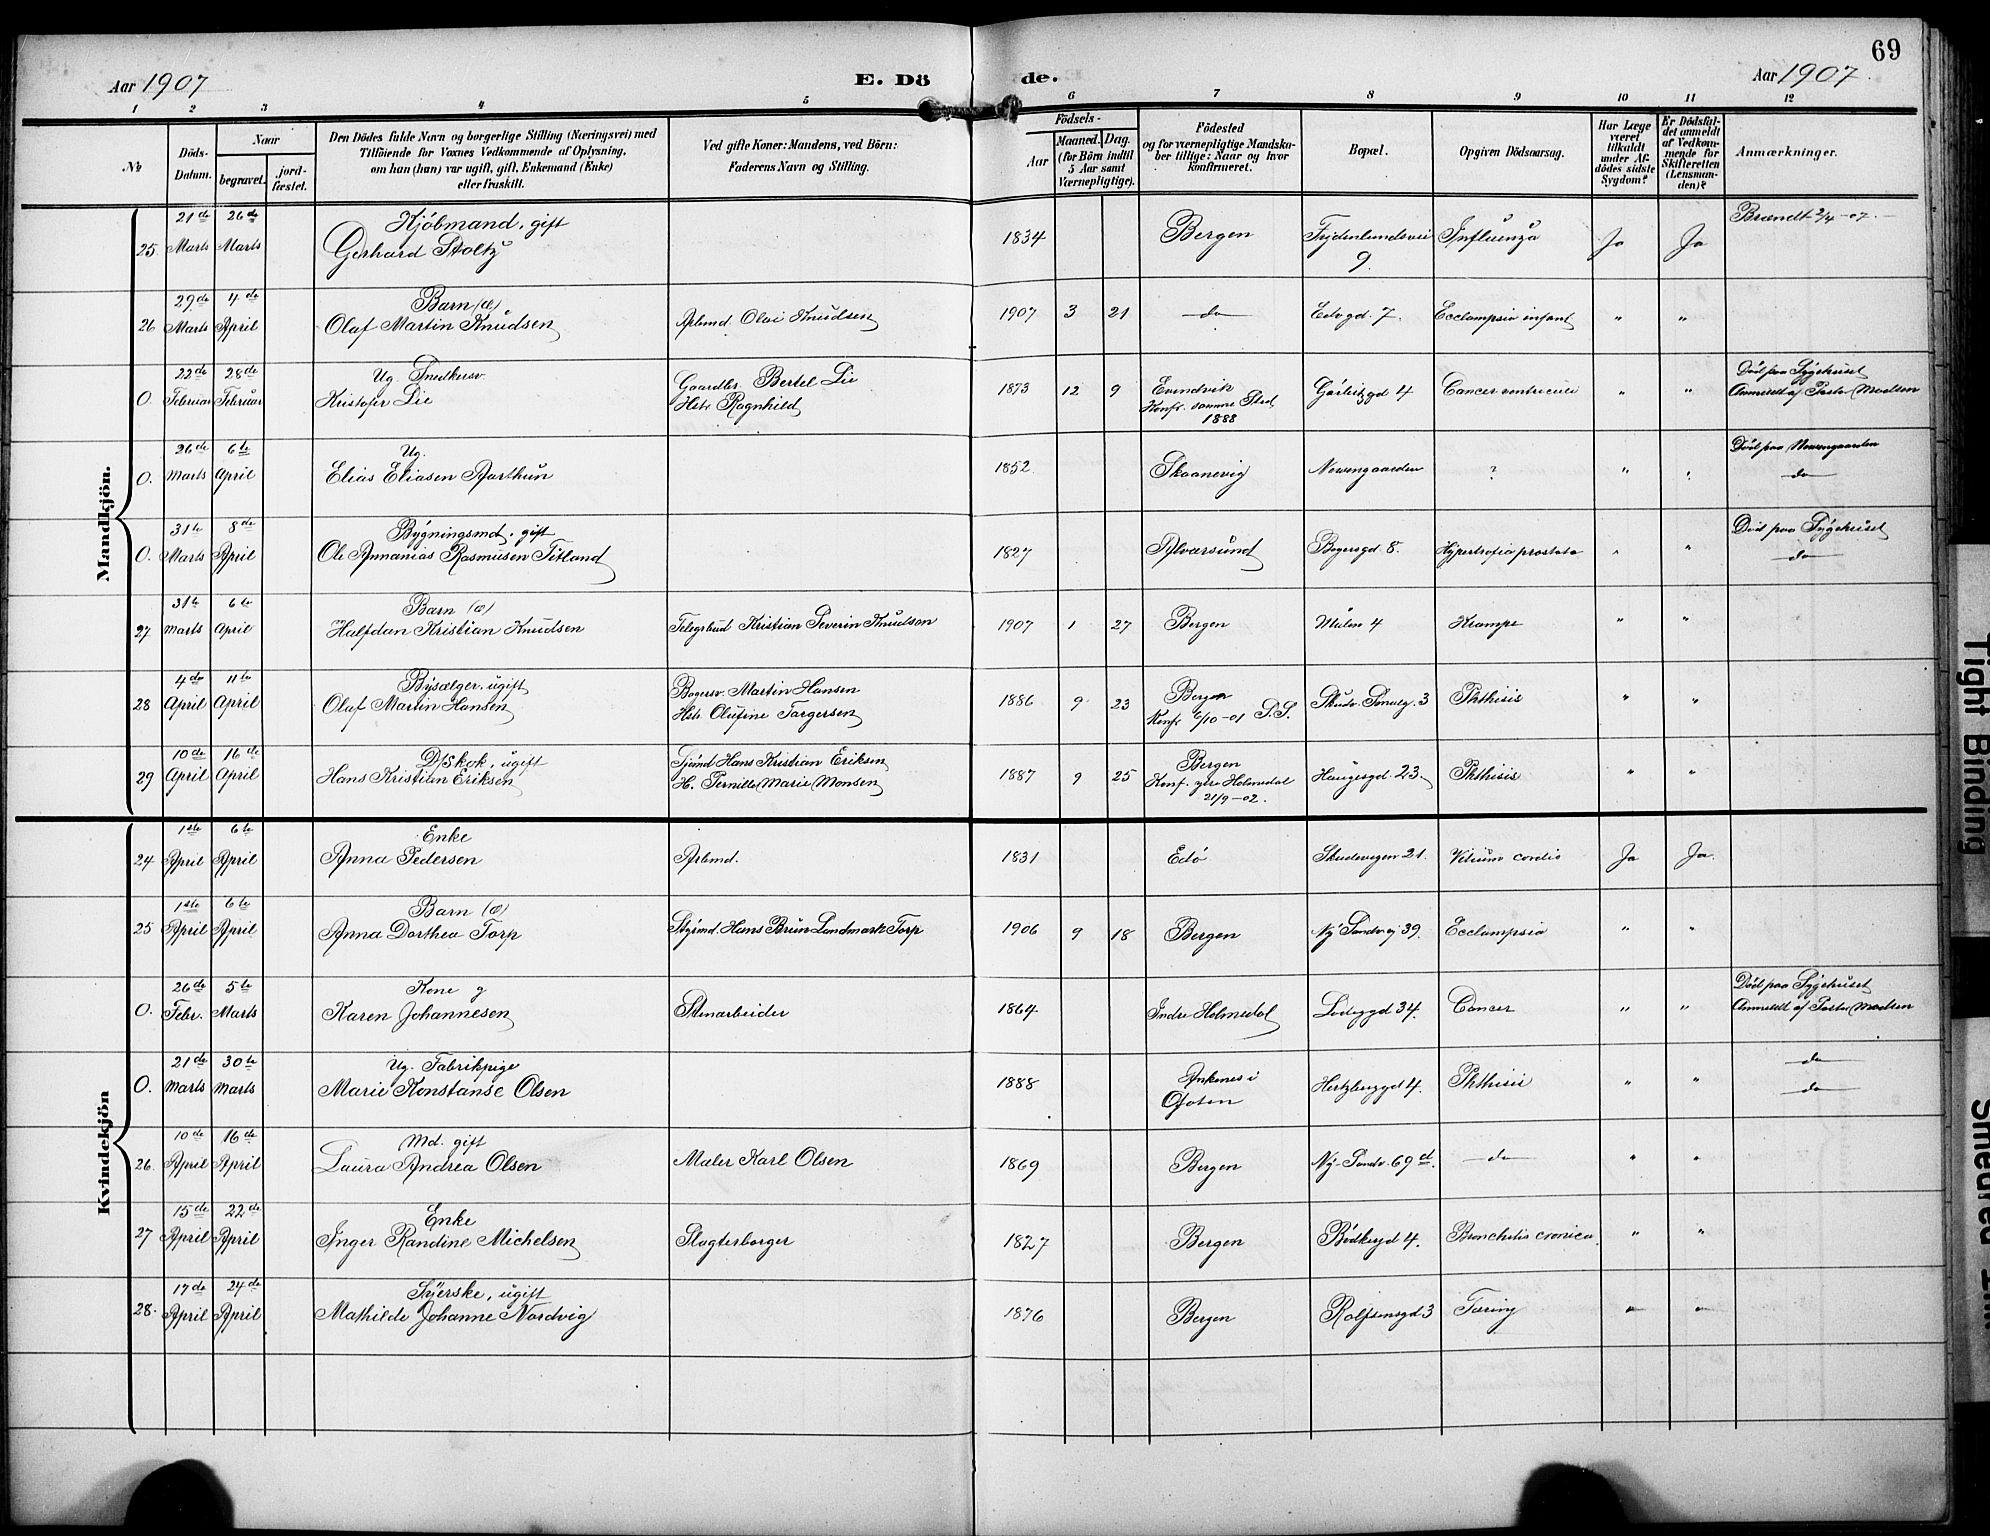 69
Aar 1907
E. Dö de.
Aar 1907.
1 2 3 4 5 6 7 8 9 10 11 12
№
Döds-Datum.
Naar
begravet.
jord-fæstet.
Den Dödes fulde Navn og borgerlige Stilling (Næringsvei) med
Tilföiende for Voxnes Vedkommende af Oplysning,
om han (hun) var ugift, gift, Enkemand (Enke)
eller fraskilt.
Ved gifte Koner: Mandens, ved Börn:
Faderens Navn og Stilling.
Födsels-
Aar
Maaned. Dag.
(for Börn indtil
5 Aar samt
Værnepligtige).
Födested
og for værnepligtige Mandska-
ber tillige: Naar og hvor
konfirmeret.
Bopæl.
Opgiven Dödsaarsag.
Har Læge
været
tilkaldt
under Af-
dödes sidste
Sygdom?
Er Dödsfal-
det anmeldt
af Vedkom-
mende for
Skifteretten
(Lensman-
den)?
Anmærkninger.
Mandkjön.
25 21de Marts 26de Marts Kjöbmand, gift
Gerhard Stoltz 1834 Bergen Influenza Ja Ja Brandt 2/4-07.
9.
26 29de Marts 4de April Barn (æ)
Olaf Martin Knudsen Arbmd. Olai Knudsen 1907 3 21 do 7. Ecclampsia infant " "
0. 22de Februar 28de Februar Ug. Snedkersv.
Kristofer Lie Gaardbr. Bertel Lie
Hstr. Ragnhild 1873 12 9 Evindvik
Konf. samme Sted
1888 4 Cancer ventriculi " " Död paa Sygehuset
Anmeldt af Pastor
0. 26de Marts 6te April Ug.
Elias Eliasen Aarthun 1852 Skaanevig ? " " Död paa
do
0. 31te Marts 8de April Bygningsmd. gift
Ole Annanias Rasmusen Titland 1827 Alværsund 8. Hypertrofia prostata " " Död paa Sygehuset
do
27 31te Marts 6te April Barn (æ)
Halfdan Kristian Knudsen Telegrbud Kristian Severin Knudson 1907 1 27 Bergen 4 Krampe " "
28 4de April 11te April Bysælger, ugift
Olaf Martin Hansen Martin Hansen
Hstr. Olufine Torgersen 1886 9 23 Bergen
Konf. 6/10-01 S.S. 3 Phthisis " "
29 10de April 16de April D/Skok, ugift
Hans Kristian Eriksen Sjömd Hans Kristian Eriksen
H. Pernille Marie Monsen 1887 9 25 Bergen
Konf. ytre Holmedal
21/9-02. Haugegd 23. Phthisis " "
Kvindekjön
24 1ste April 6te April Enke
Anna Pedersen Arbmd. 1831 Edö Skudevigen 21. Vitium cordis Ja Ja.
25 1ste April 6te April Barn (æ)
Anna Dorthea Torp Styrmd. Hans Brun Landmark Torp 1906 9 18 Bergen Ny Sandvej 39. Ecclampsia " "
0. 26de Febr. 5te Marts Kone g
Karen Johannesen Stenarbeider 1864 Indre Holmedal 34. Cancer " " Död paa Sygehuset
Anmeldt af Pastor
0. 21de Marts 30te Marts Ug. Fabrikpige
Marie Konstanse Olsen 1888 Ankenes i
Ofoten Hertzberggd 4. Phthisis " " do
do
26. 10de April 16de April Md. gift
Laura Andrea Olsen Maler Karl Olsen 1869 Bergen Ny-Sandv. 69d. do " "
27 15de April 22de April Enke
Inger Randine Michelsen Slagterborger 1827 Bergen Bödkergd 4. Bronchitis cronica. " "
28. 17de April 24de April Syerske, ugift
Mathilde Johanne Nordvig 1876 Bergen Rolfsensgd 3 Tæring " "
Tight Binding